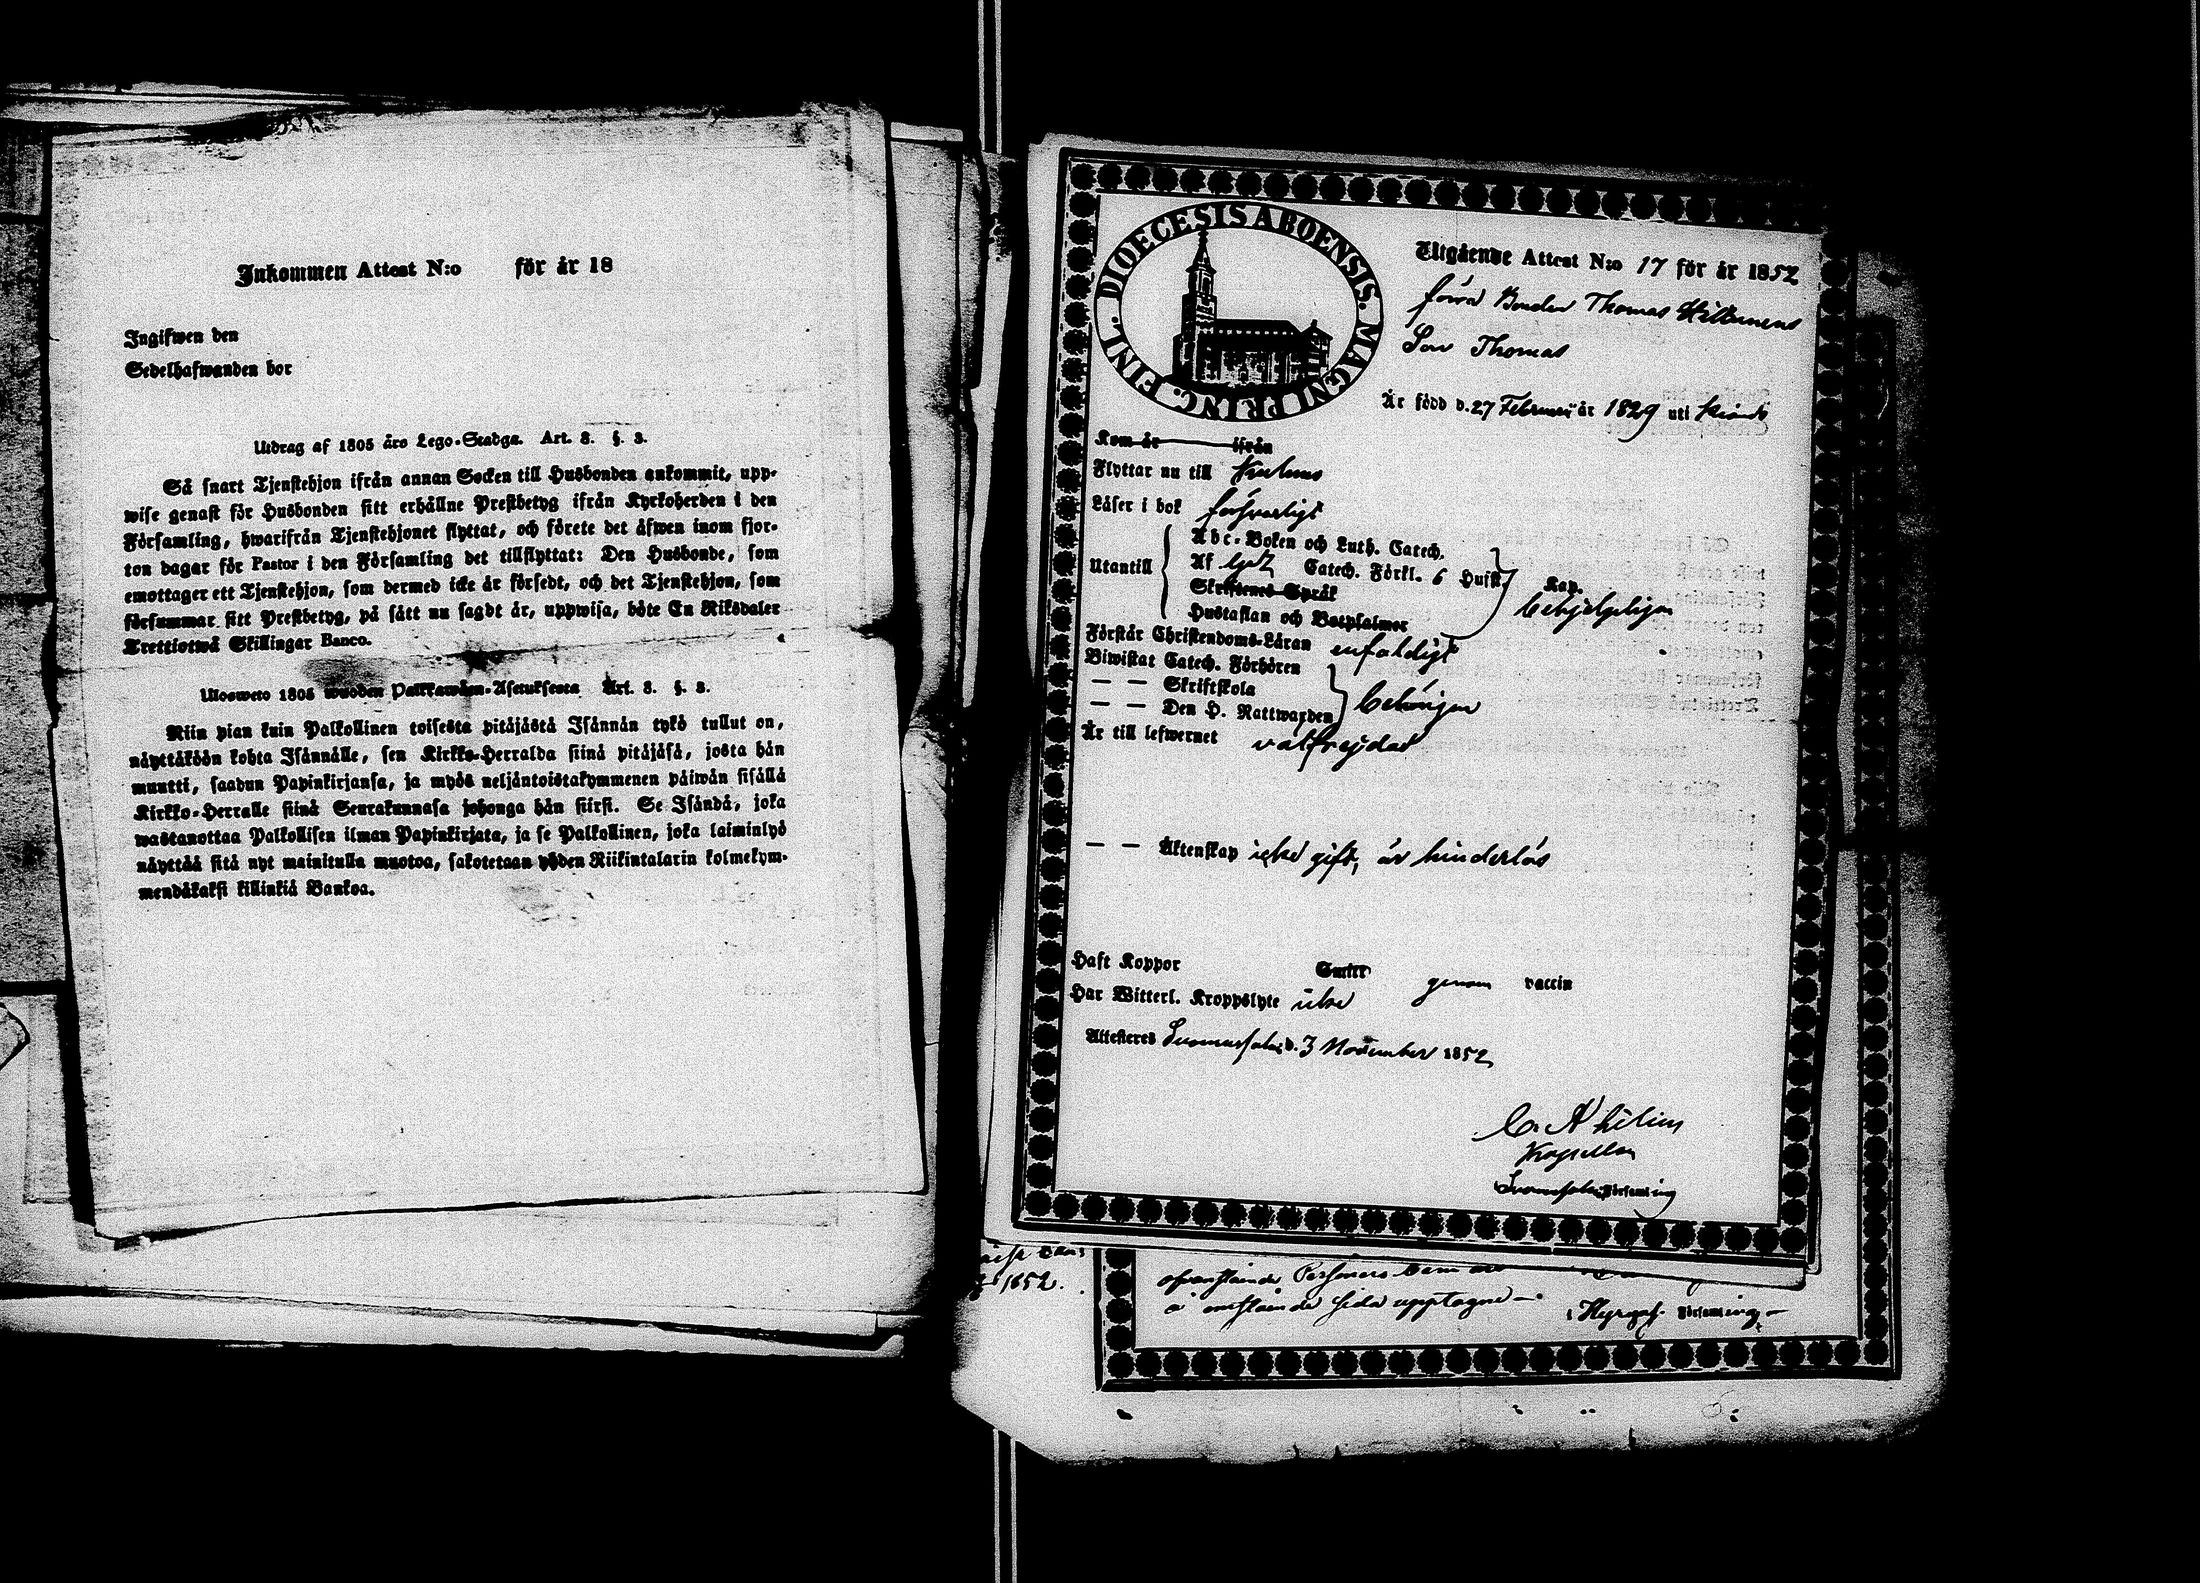 Inkommen Attest N:o för år 18
Ingifwen den
Sedelhafwanden bor
Utdrag af 1805 års Lego-Stadga. Art. 8. §. 3.
Så snart Tjenstehjon ifrån annan Socken till Husbonden ankommit, upp-
wise genast för Husbonden sitt erhållne Prestbetyg ifrån Kyrkoherden i den
Församling, hwarifrån Tjenstehjonet flyttat, och förete det äfwen inom fjor-
ton dagar för Pastor i den Församling det tillflyttat: Den Husbonde, som
emottager ett Tjenstehjon, som dermed icke är försedt, och det Tjenstehjon, som
försummar sitt Prestbetyg, på sätt nu sagdt är, uppwisa, böte En Riksdaler
Trettiotwå Skillingar Banco.
Ulosweto 1805 wuoden Palkkawäen-Asetuksesta Art. 8. §. 3.
Niin pian kuin Palkollinen toisesta pitäjästä Isännän tykö tullut on,
näyttäköön kohta Isännälle, sen Kirkko-Herralda siinä pitäjäsä, josta hän
muutti, saadun Papinkirjansa, ja myös neljäntoistakymmenen päiwän sisällä
Kirkko-Herralle siinä Seurakunnasa johonga hän siirsi. Se Isändä, joka
wastanottaa Palkollisen ilman Papinkirjata, ja se Palkollinen, joka laiminlyö
näyttää sitä nyt mainitulla muotoa, sakotetaan yhden Riikintalarin kolmekym-
mendäkaksi killinkiä Bankoa.
DIOECESIS ABOENSIS. MAGNI PRINC. FINL.
Utgående Attest N:o 17 för år 1852
förra Bonden Thomas Hiltunens
Son Thomas
Är född d. 27 Februarii år 1829 uti
Kom år ifrån
Flyttar nu till
Läser i bok försvarligt
Abc-Boken och Luth. Catech.
Utantill Af Catech. Förkl. 6 Hufst. Kap.
Skriftenes Språk behjelpligen
Hustaflan och Botpsalmer
Förstår Christendoms-Läran enfaldigt
Biwistat Catech. Förhören
— — Skriftskola behörigen
— — Den H. Nattwarden
Är till lefwernet välfrejdad
— — Äktenskap icke gift, är hinderlös
Haft Koppor genom vaccin
Har Witterl. Kroppslyte icke
Attesteres Suomussalmi d. 3 November 1852
Kapellan
Suomusalmi Församling
1852.
ofvanstående Personers
å omstående sida upptagne —
i Hyryns. Församling —